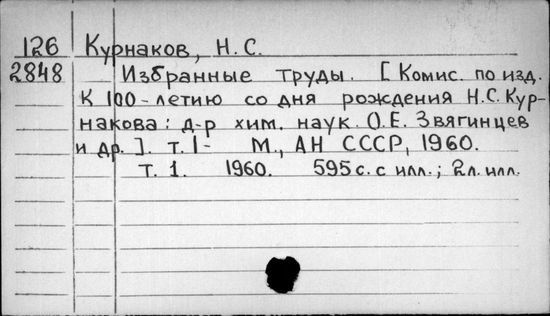 126 Курнаков, Н.С.
2848 Избранные труды. [Комис. по изд.
К 100-летию со дня рождения Н.С.Кур-
накова: д-р хим. наук О.Е. Звягинцев
и др.]. т.1- М., АН СССР, 1960.
Т. 1. 1960. 595 с. с илл.; 2 л. илл.